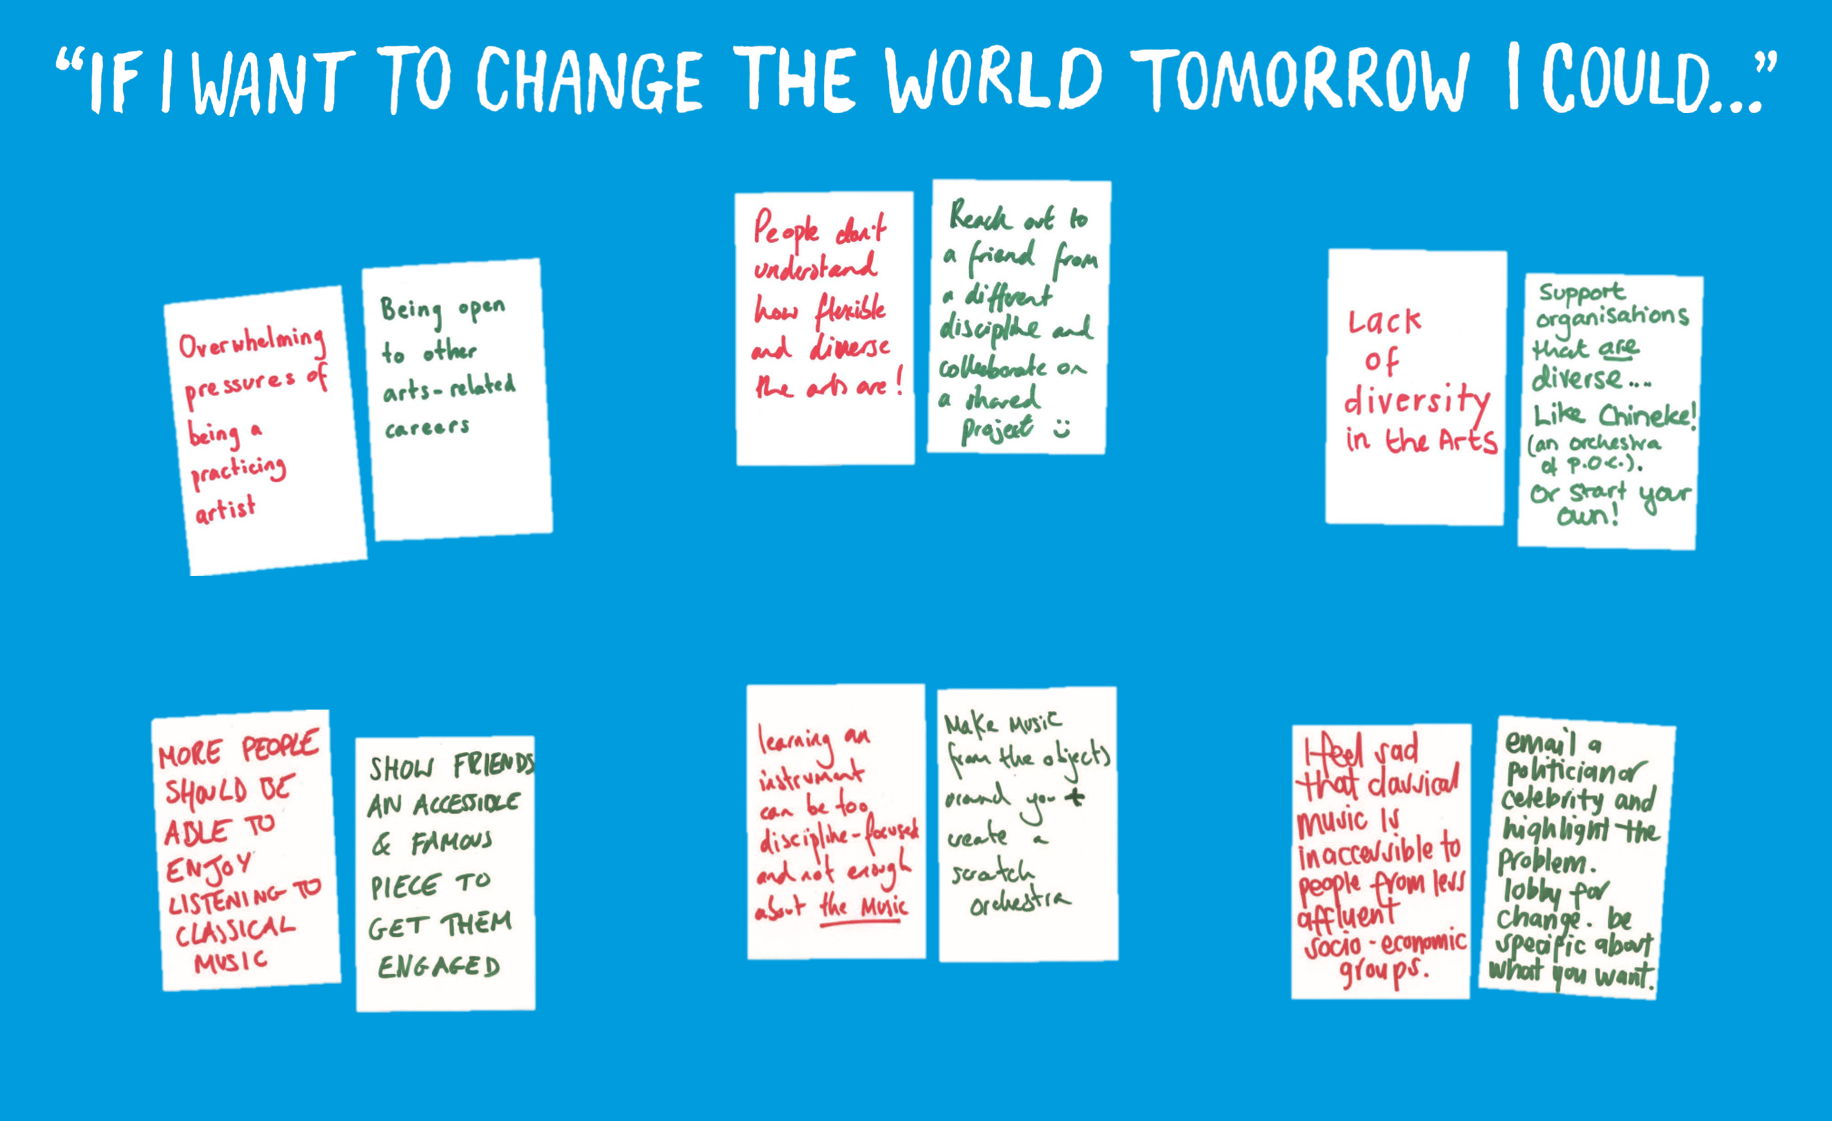 “IF I WANT TO CHANGE THE WORLD TOMORROW I COULD...”
Overwhelming
pressures of
being a
practicing
artist
Being open
to other
arts-related
careers
People don't
understand
how flexible
and diverse
the arts are!
Reach out to
a friend from
a different
discipline and
collaborate on
a shared
project :)
Lack
of
diversity
in the Arts
Support
organisations
that are
diverse...
Like Chineke!
(an orchestra
of P.O.C.).
Or start your
own!
MORE PEOPLE
SHOULD BE
ABLE TO
ENJOY
LISTENING TO
CLASSICAL
MUSIC
SHOW FRIENDS
AN ACCESSIBLE
& FAMOUS
PIECE TO
GET THEM
ENGAGED
learning an
instrument
can be too
discipline-focused
and not enough
about the Music
Make Music
from the objects
around you +
create a
scratch
orchestra
I feel sad
that classical
music is
inaccessible to
people from less
affluent
socio-economic
groups.
email a
politician or
celebrity and
highlight the
problem.
lobby for
change. be
specific about
what you want.